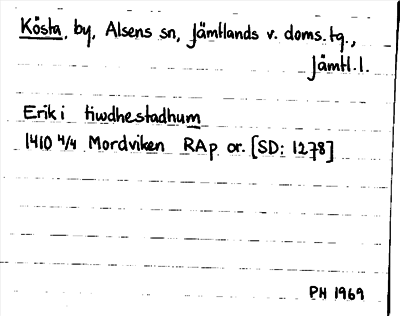 Kösta, by, Alsens sn, Jämtlands v. doms.tg.,
Jämtl.l.
Erik i tiwdhestadhum
1410 4/4 Mordviken RAp or. [SD: 1278]
PH 1969